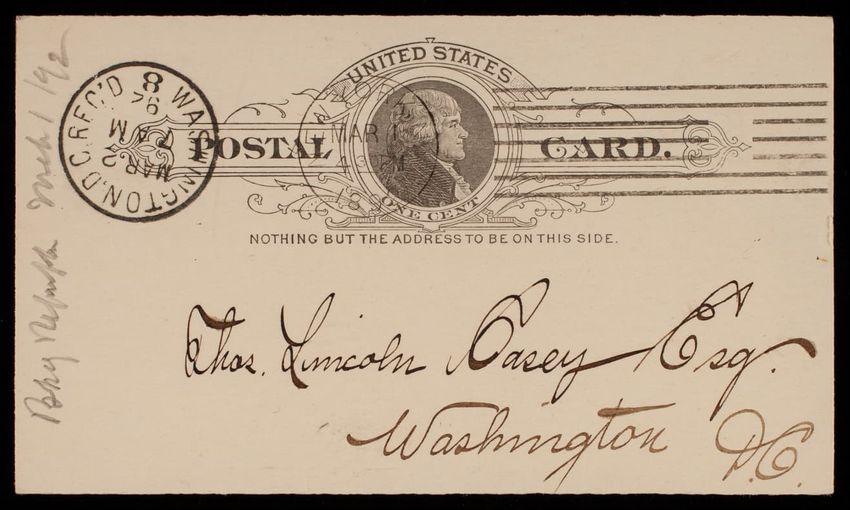 UNITED STATES
POSTAL CARD.
ONE CENT
NOTHING BUT THE ADDRESS TO BE ON THIS SIDE.
WASHINGTON, D.C. REC'D.
MAR 2
7 AM
92
8
MAR 1
PM
18
Thos. Lincoln Casey Esq.
Washington D.C.
Mch 1/92